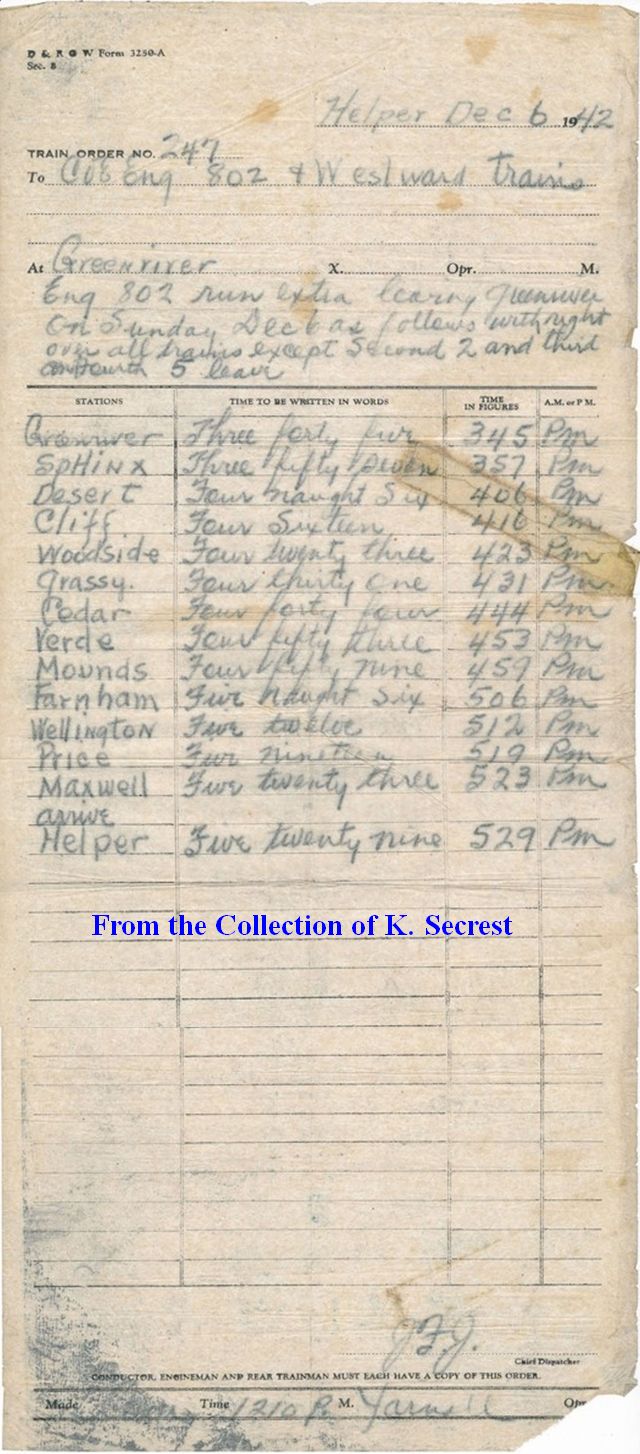 D & R G W Form 3250-A
Sec. 8
Helper Dec 6 1942
TRAIN ORDER NO. 247
To C&E Eng 802 & Westward trains
At Greenriver X. Opr. M.
Eng 802 run extra leaving Greenriver
On Sunday Dec 6 as follows with right
over all trains except Second 2 and third
and fourth 5 leave
STATIONS TIME TO BE WRITTEN IN WORDS TIME IN FIGURES A.M. or P M.
Greenriver Three forty five 345 Pm
SpHinx Three fifty seven 357 Pm
Desert Four naught Six 406 Pm
Cliff Four Sixteen 416 Pm
Woodside Four twenty three 423 Pm
Grassy. Four thirty One 431 Pm
Cedar Four forty four 444 Pm
Verde Four fifty three 453 Pm
Mounds Four fifty nine 459 Pm
Farnham Five naught Six 506 Pm
Wellington Five twelve 512 Pm
Price Five nineteen 519 Pm
Maxwell Five twenty three 523 Pm
arrive
Helper Five twenty nine 529 Pm
From the Collection of K. Secrest
J.F.J.
Chief Dispatcher
CONDUCTOR, ENGINEMAN AND REAR TRAINMAN MUST EACH HAVE A COPY OF THIS ORDER.
Made Time 1210 P. M. Yarnell Opr